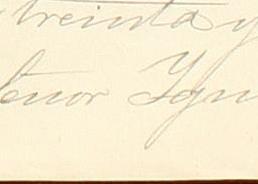 treinta y
enor Ygn